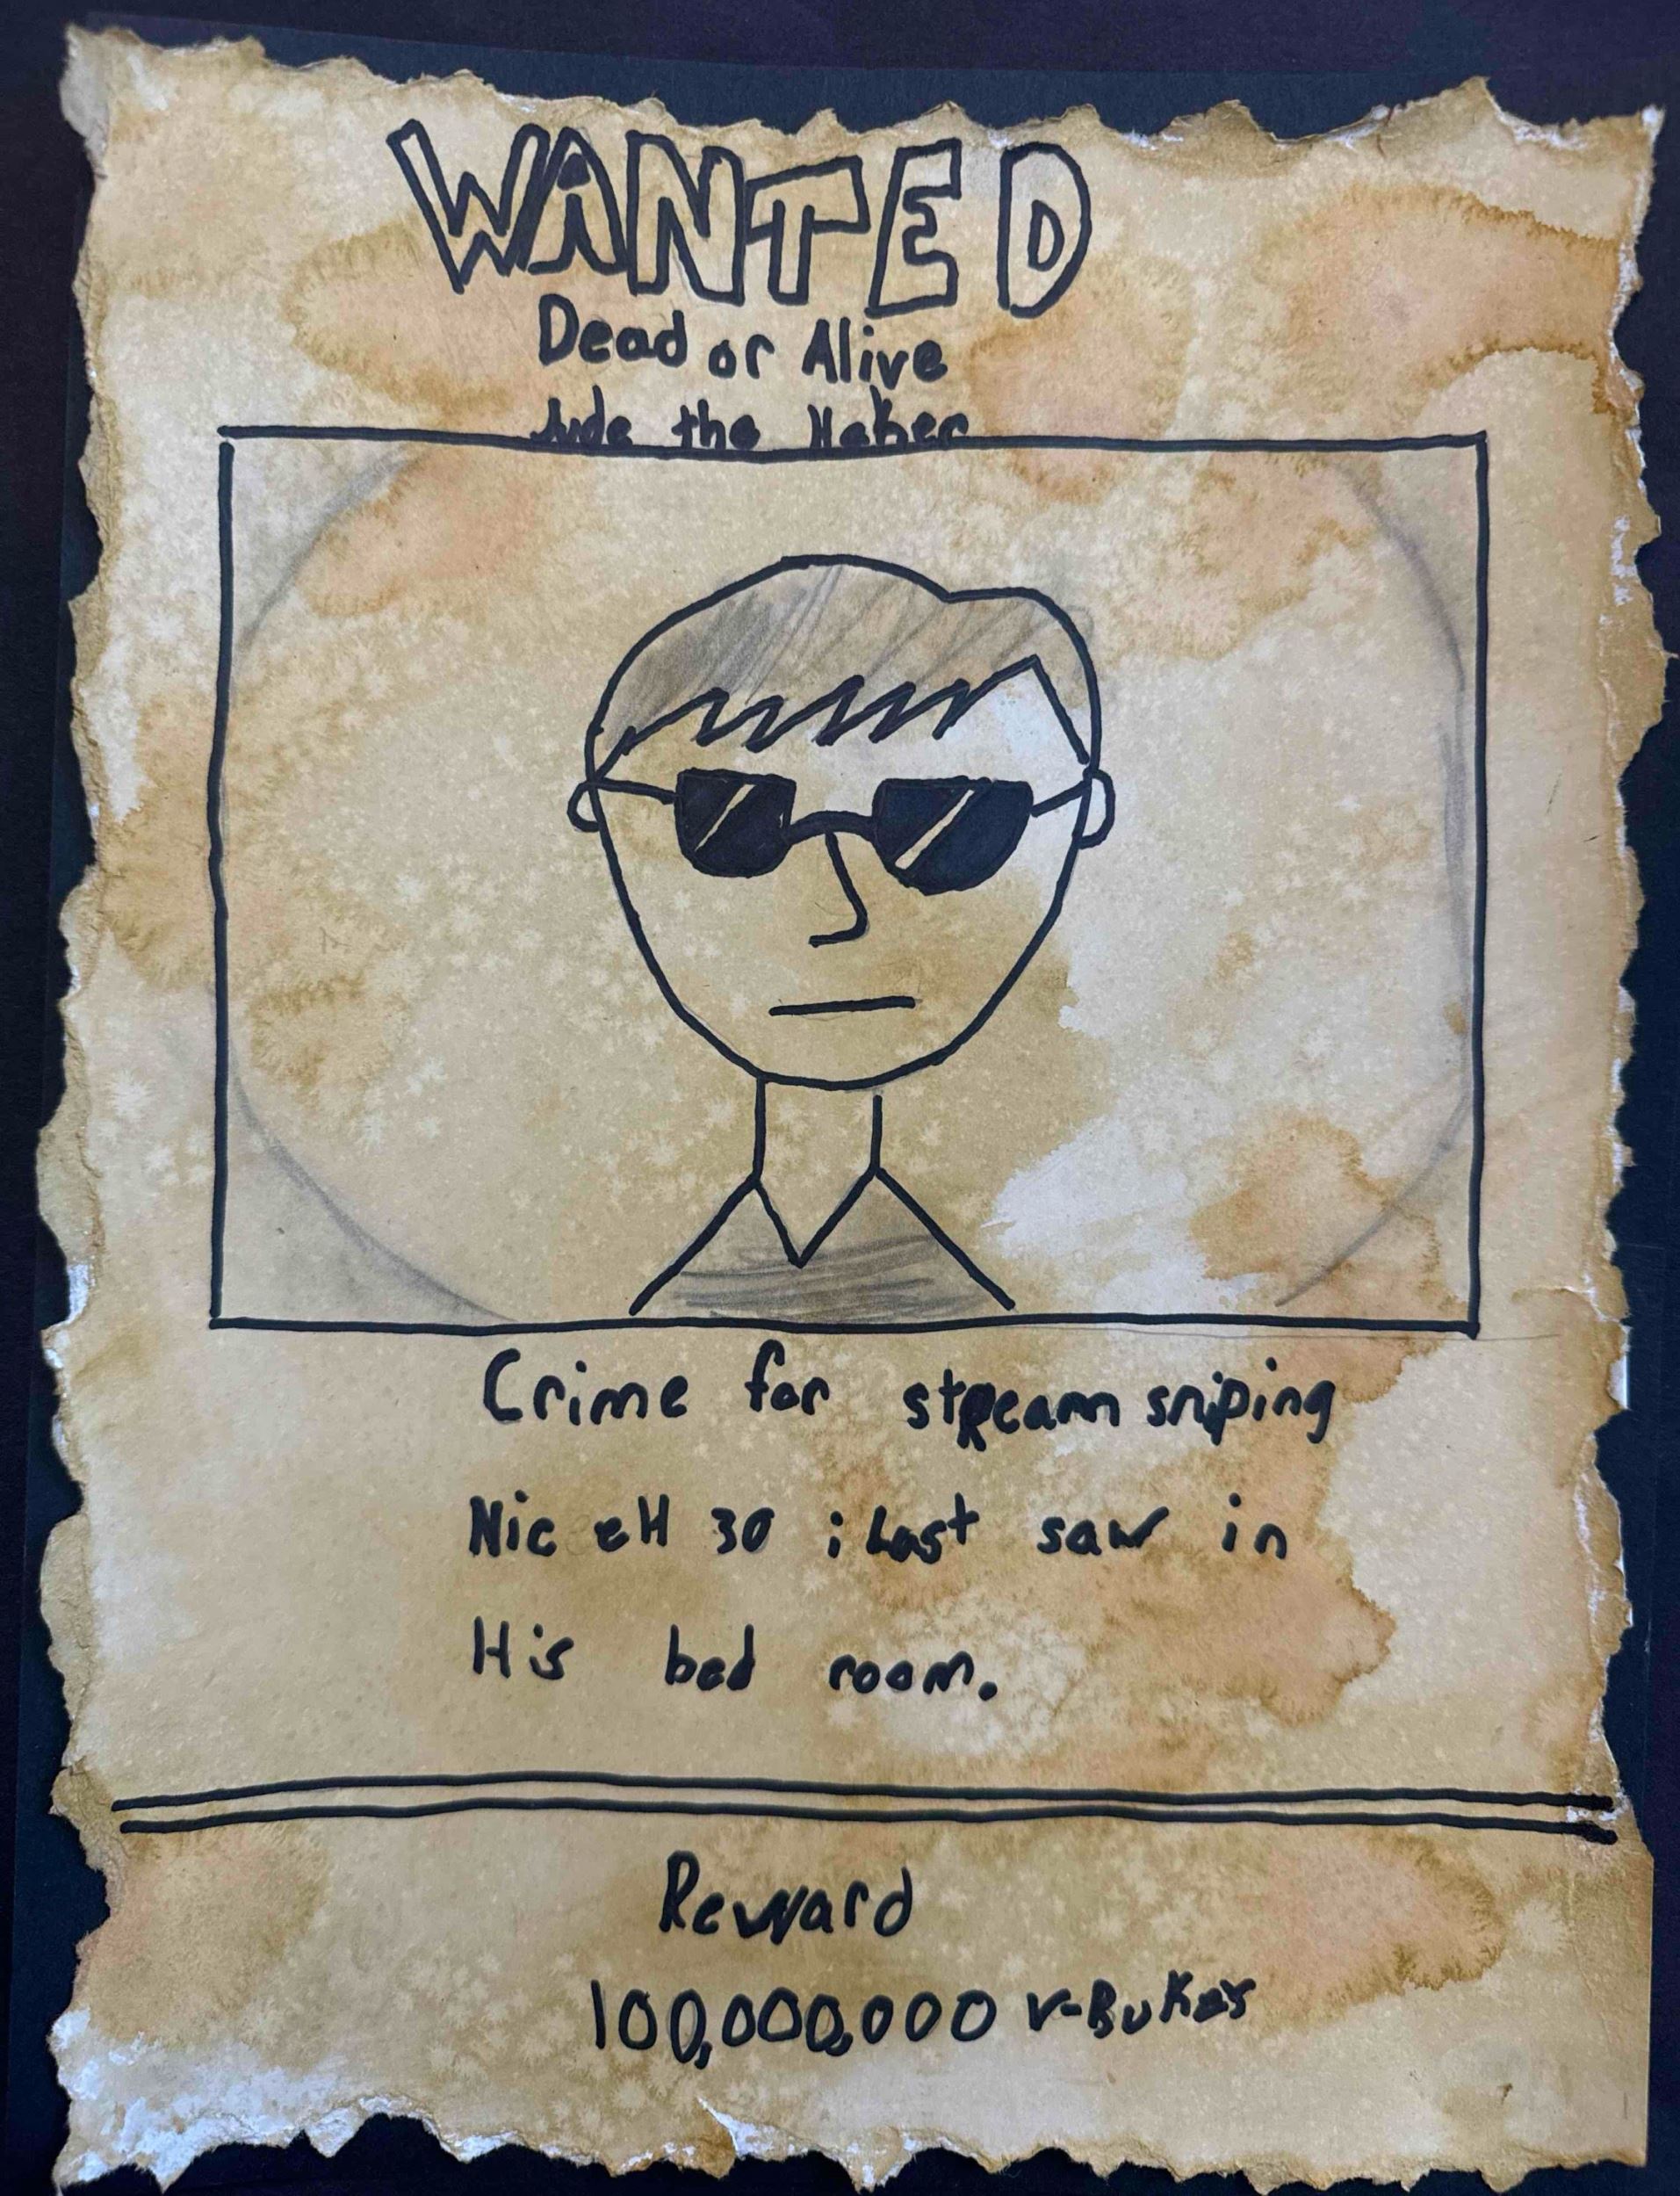 WANTED
Dead or Alive
Jude the Haker
Crime for stream sniping
Nic eH 30 ; Last saw in
His bed room.
Reward
100,000,000 v-Bukes